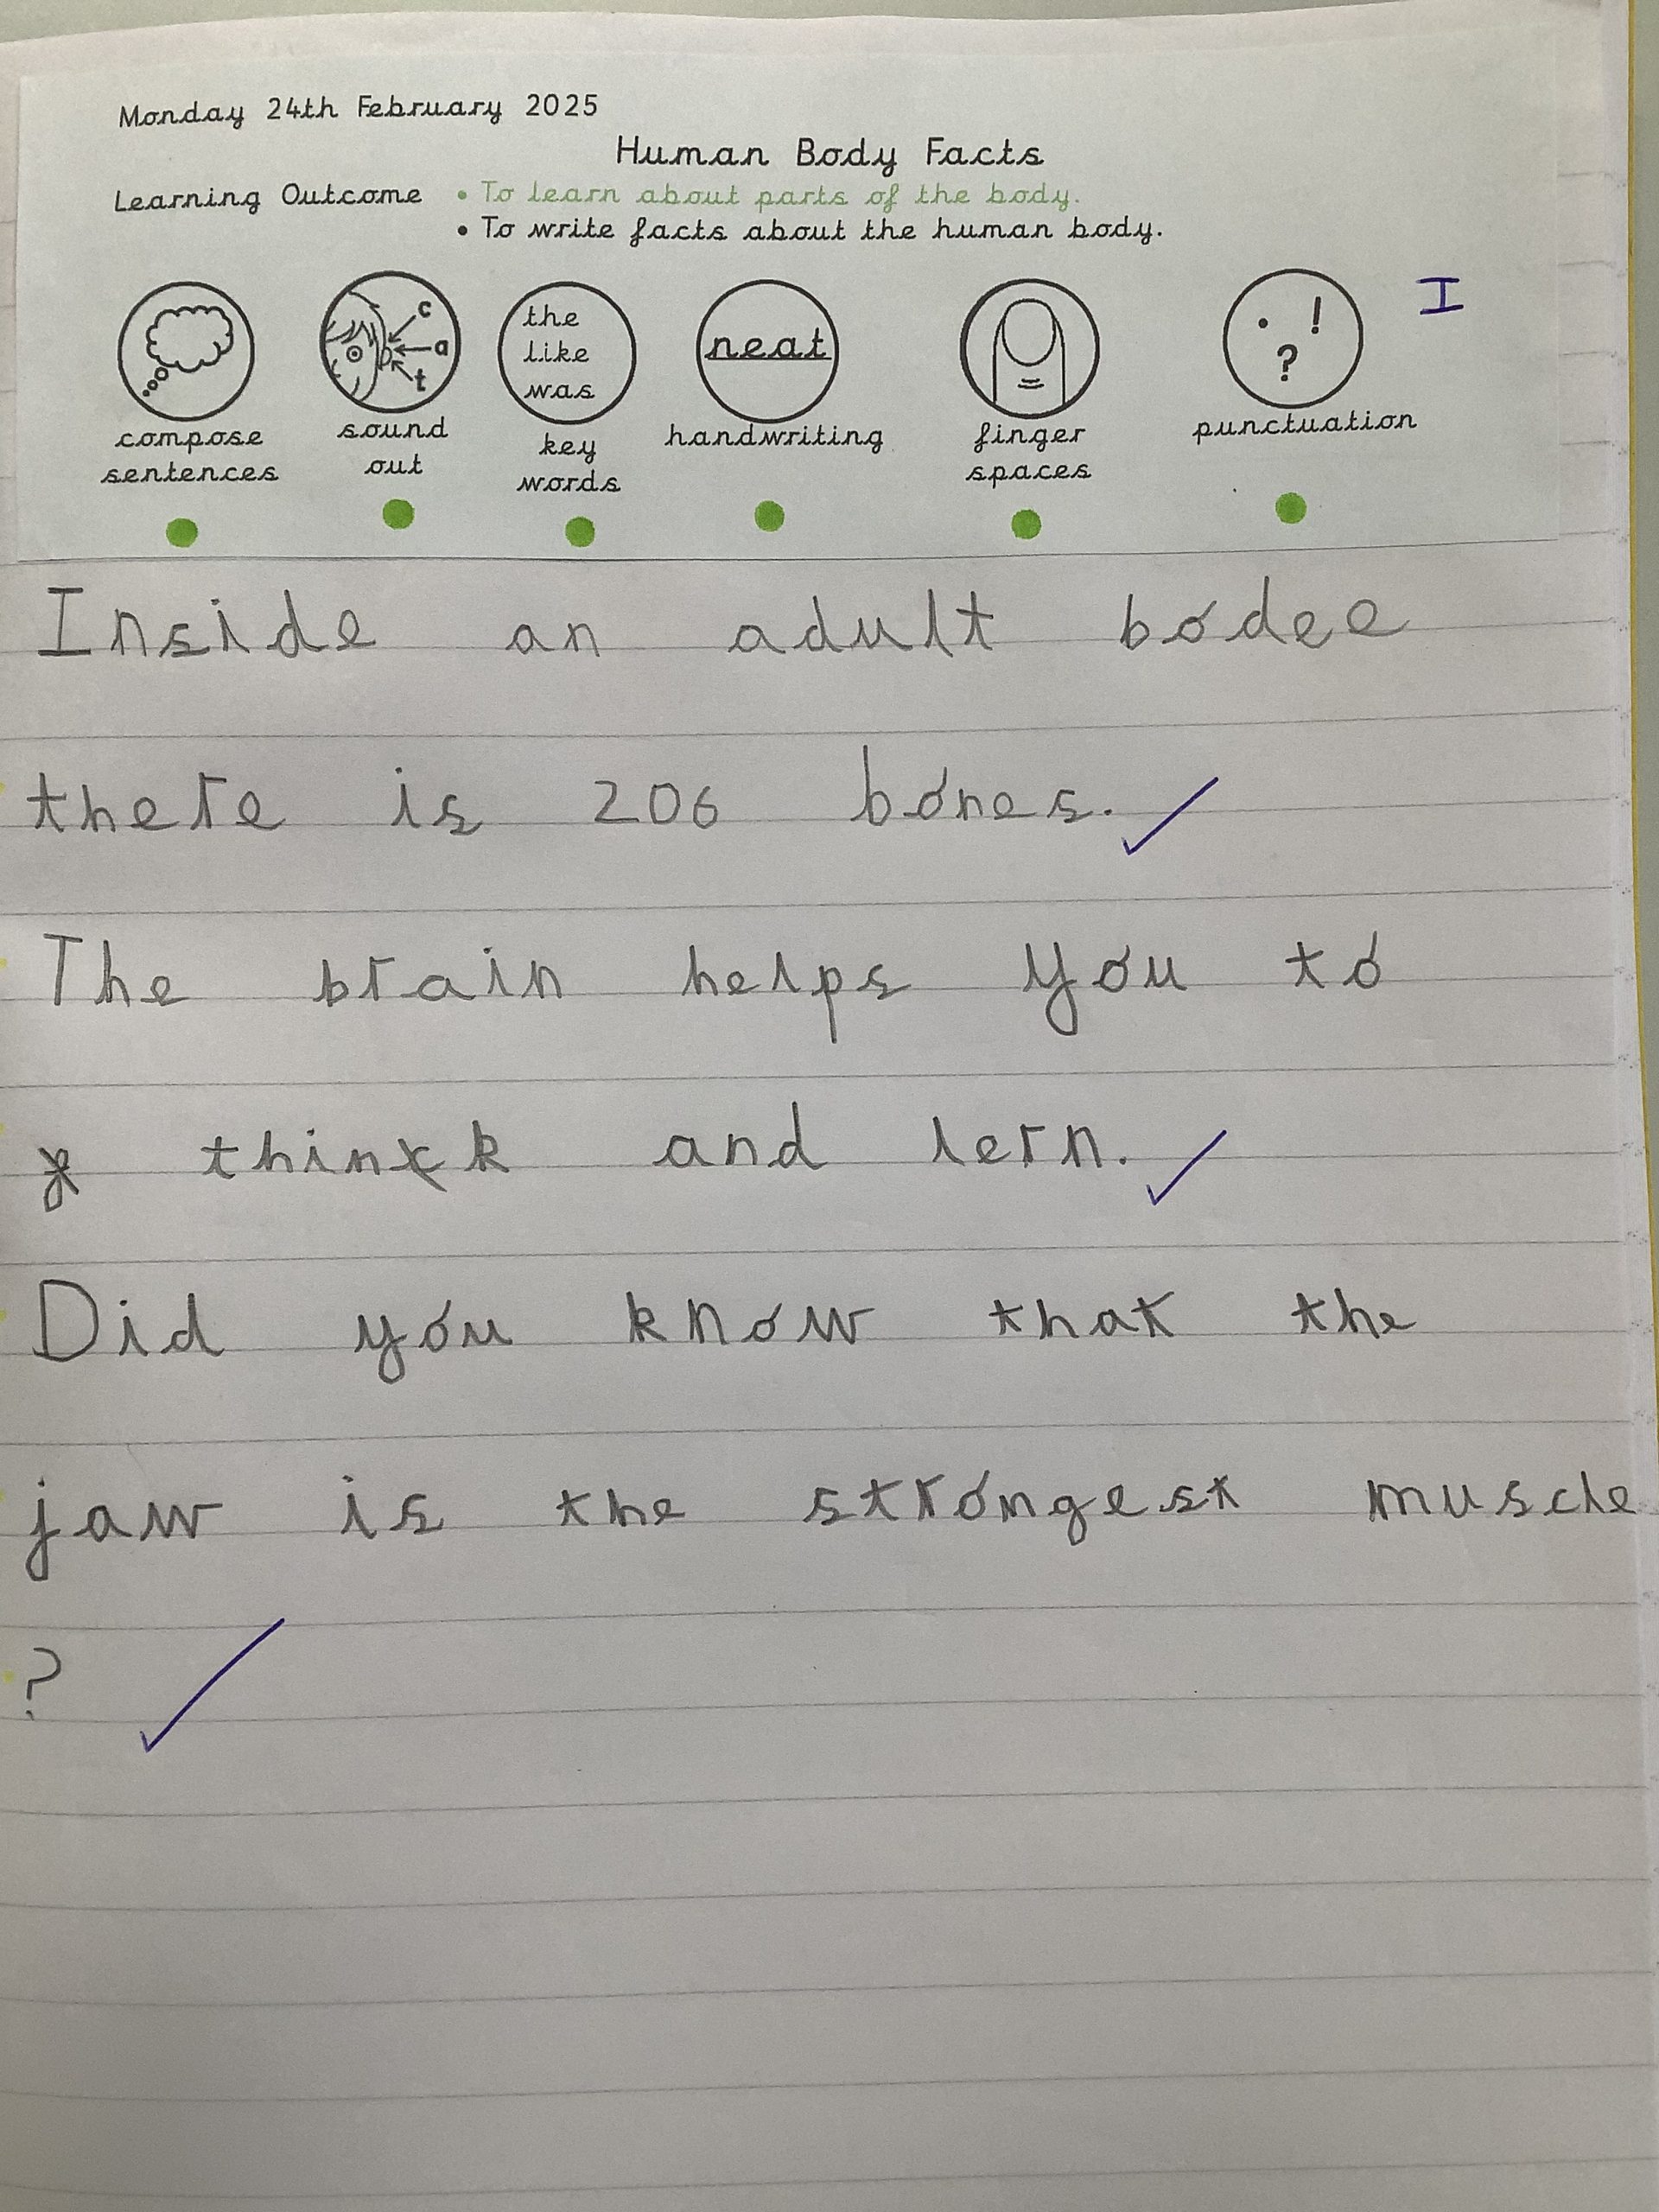 Monday 24th February 2025
Human Body Facts
Learning Outcome • To learn about parts of the body.
• To write facts about the human body.
I
c
a
t
the
like
was
neat
. !
?
compose
sentences
sound
out
key
words
handwriting
finger
spaces
punctuation
Inside an adult bodee
there is 206 bones.
The brain helps you to
think and lern.
Did you know that the
jaw is the strongest muscle
?